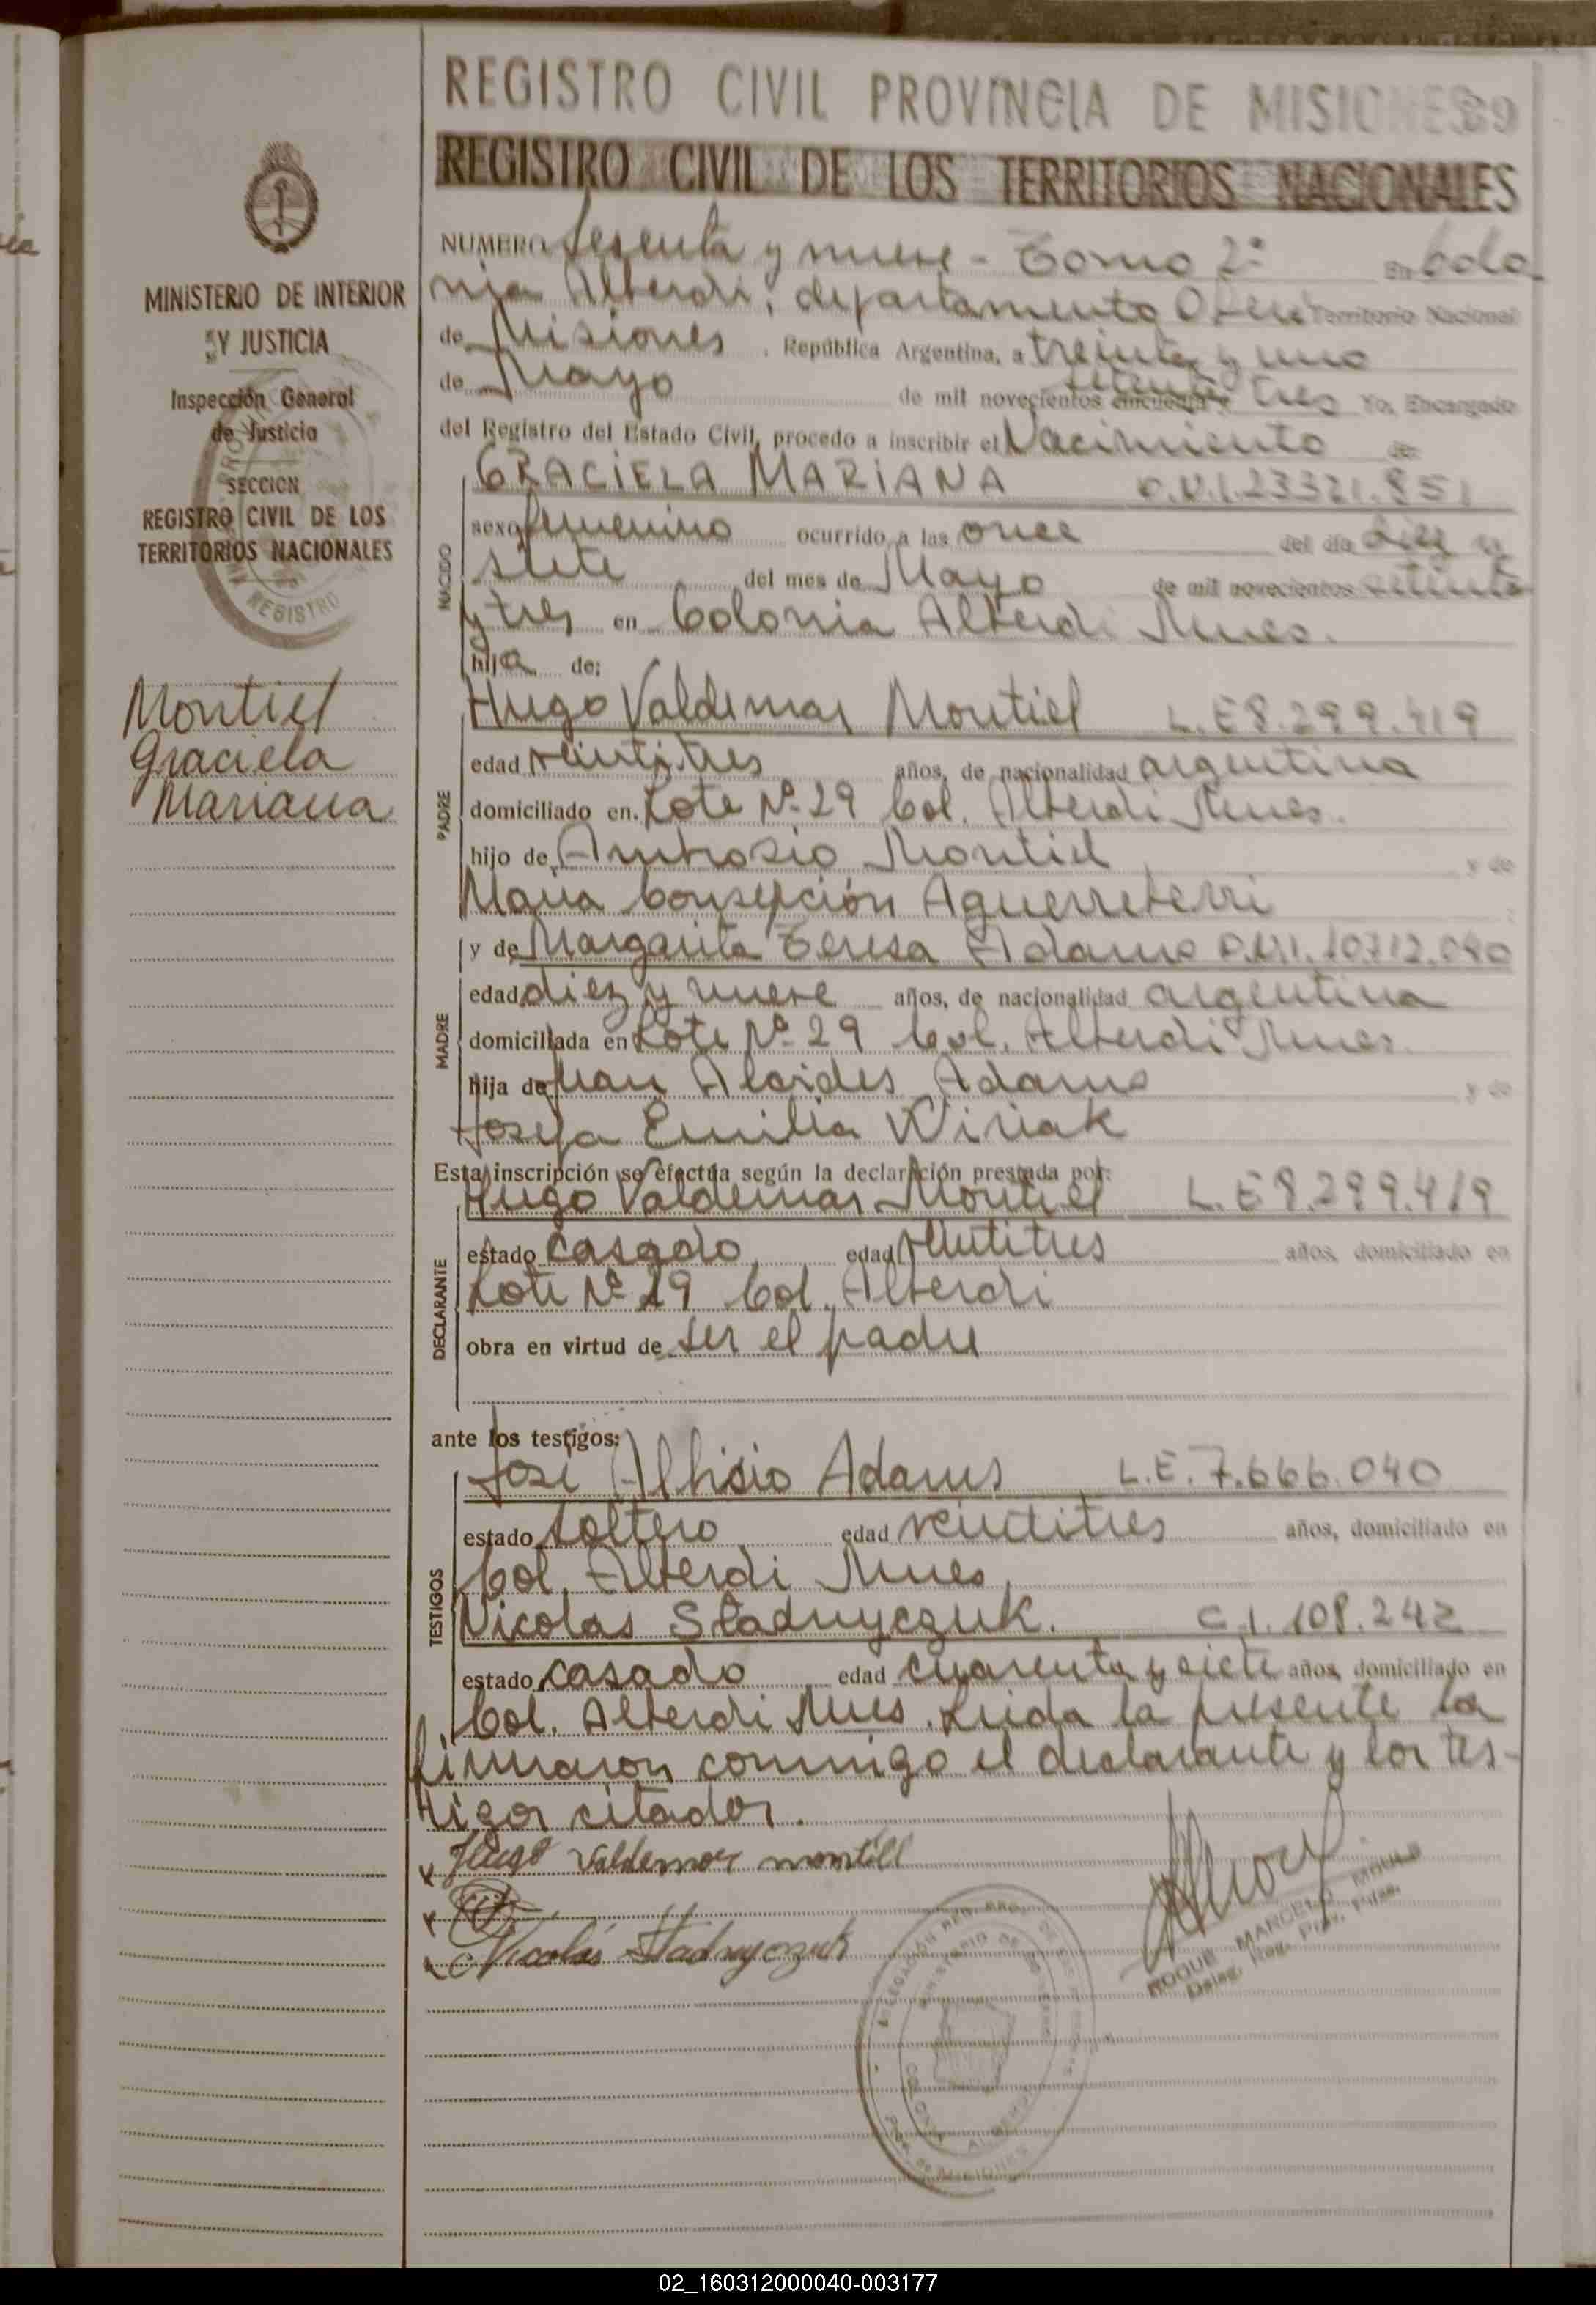 REGISTRO CIVIL PROVINCIA DE MISIONES 89
REGISTRO CIVIL DE LOS TERRITORIOS NACIONALES
MINISTERIO DE INTERIOR
Y JUSTICIA
Inspección General
de Justicia
SECCION
REGISTRO CIVIL DE LOS
TERRITORIOS NACIONALES
REGISTRO
Montiel
Graciela
Mariana
NUMERO Sesenta y nueve - Tomo 2º En Colo
nia Alberdi, departamento Oberá Territorio Nacional
de Misiones, República Argentina, a treinta y uno
de Mayo de mil novecientos cincuenta y setenta y tres Yo, Encargado
del Registro del Estado Civil, procedo a inscribir el Nacimiento de:
NACIDO
GRACIELA MARIANA D.N.I. 23321.851
sexo femenino ocurrido a las once del día diez y
siete del mes de Mayo de mil novecientos setenta
y tres en Colonia Alberdi Mnes.
hija de:
PADRE
Hugo Valdemar Montiel L.E 8.299.419
edad veintitres años, de nacionalidad argentina
domiciliado en Lote Nº 29 Col. Alberdi Mnes.
hijo de Ambrosio Montiel y de
Maria Consepción Aguerreberri
MADRE
y de Margarita Teresa Adams D.N.I. 10712.040
edad diez y nueve años, de nacionalidad argentina
domiciliada en Lote Nº 29 Col. Alberdi Mnes.
hija de Juan Alcides Adams y de
Josefa Emilia Wiriak
Esta inscripción se efectúa según la declaración prestada por:
DECLARANTE
Hugo Valdemar Montiel L.E 8.299.419
estado casado edad veintitres años, domiciliado en
Lote Nº 29 Col. Alberdi
obra en virtud de ser el padre
ante los testigos:
TESTIGOS
José Albisio Adams L.E. 7.666.040
estado soltero edad veintitres años, domiciliado en
Col. Alberdi Mnes.
Nicolas Stadnyczuk. C.I. 108.242
estado casado edad cuarenta y siete años, domiciliado en
Col. Alberdi Mnes. Leida la presente la
firmaron conmigo el declarante y los tes-
tigos citados.
x Hugo Valdemar montiel
x Nicolas Stadnyczuk
ROQUE MARCELO
Deleg. Reg. Prov. Pnas.
COLONIA ALBERDI
MISIONES
02_160312000040-003177